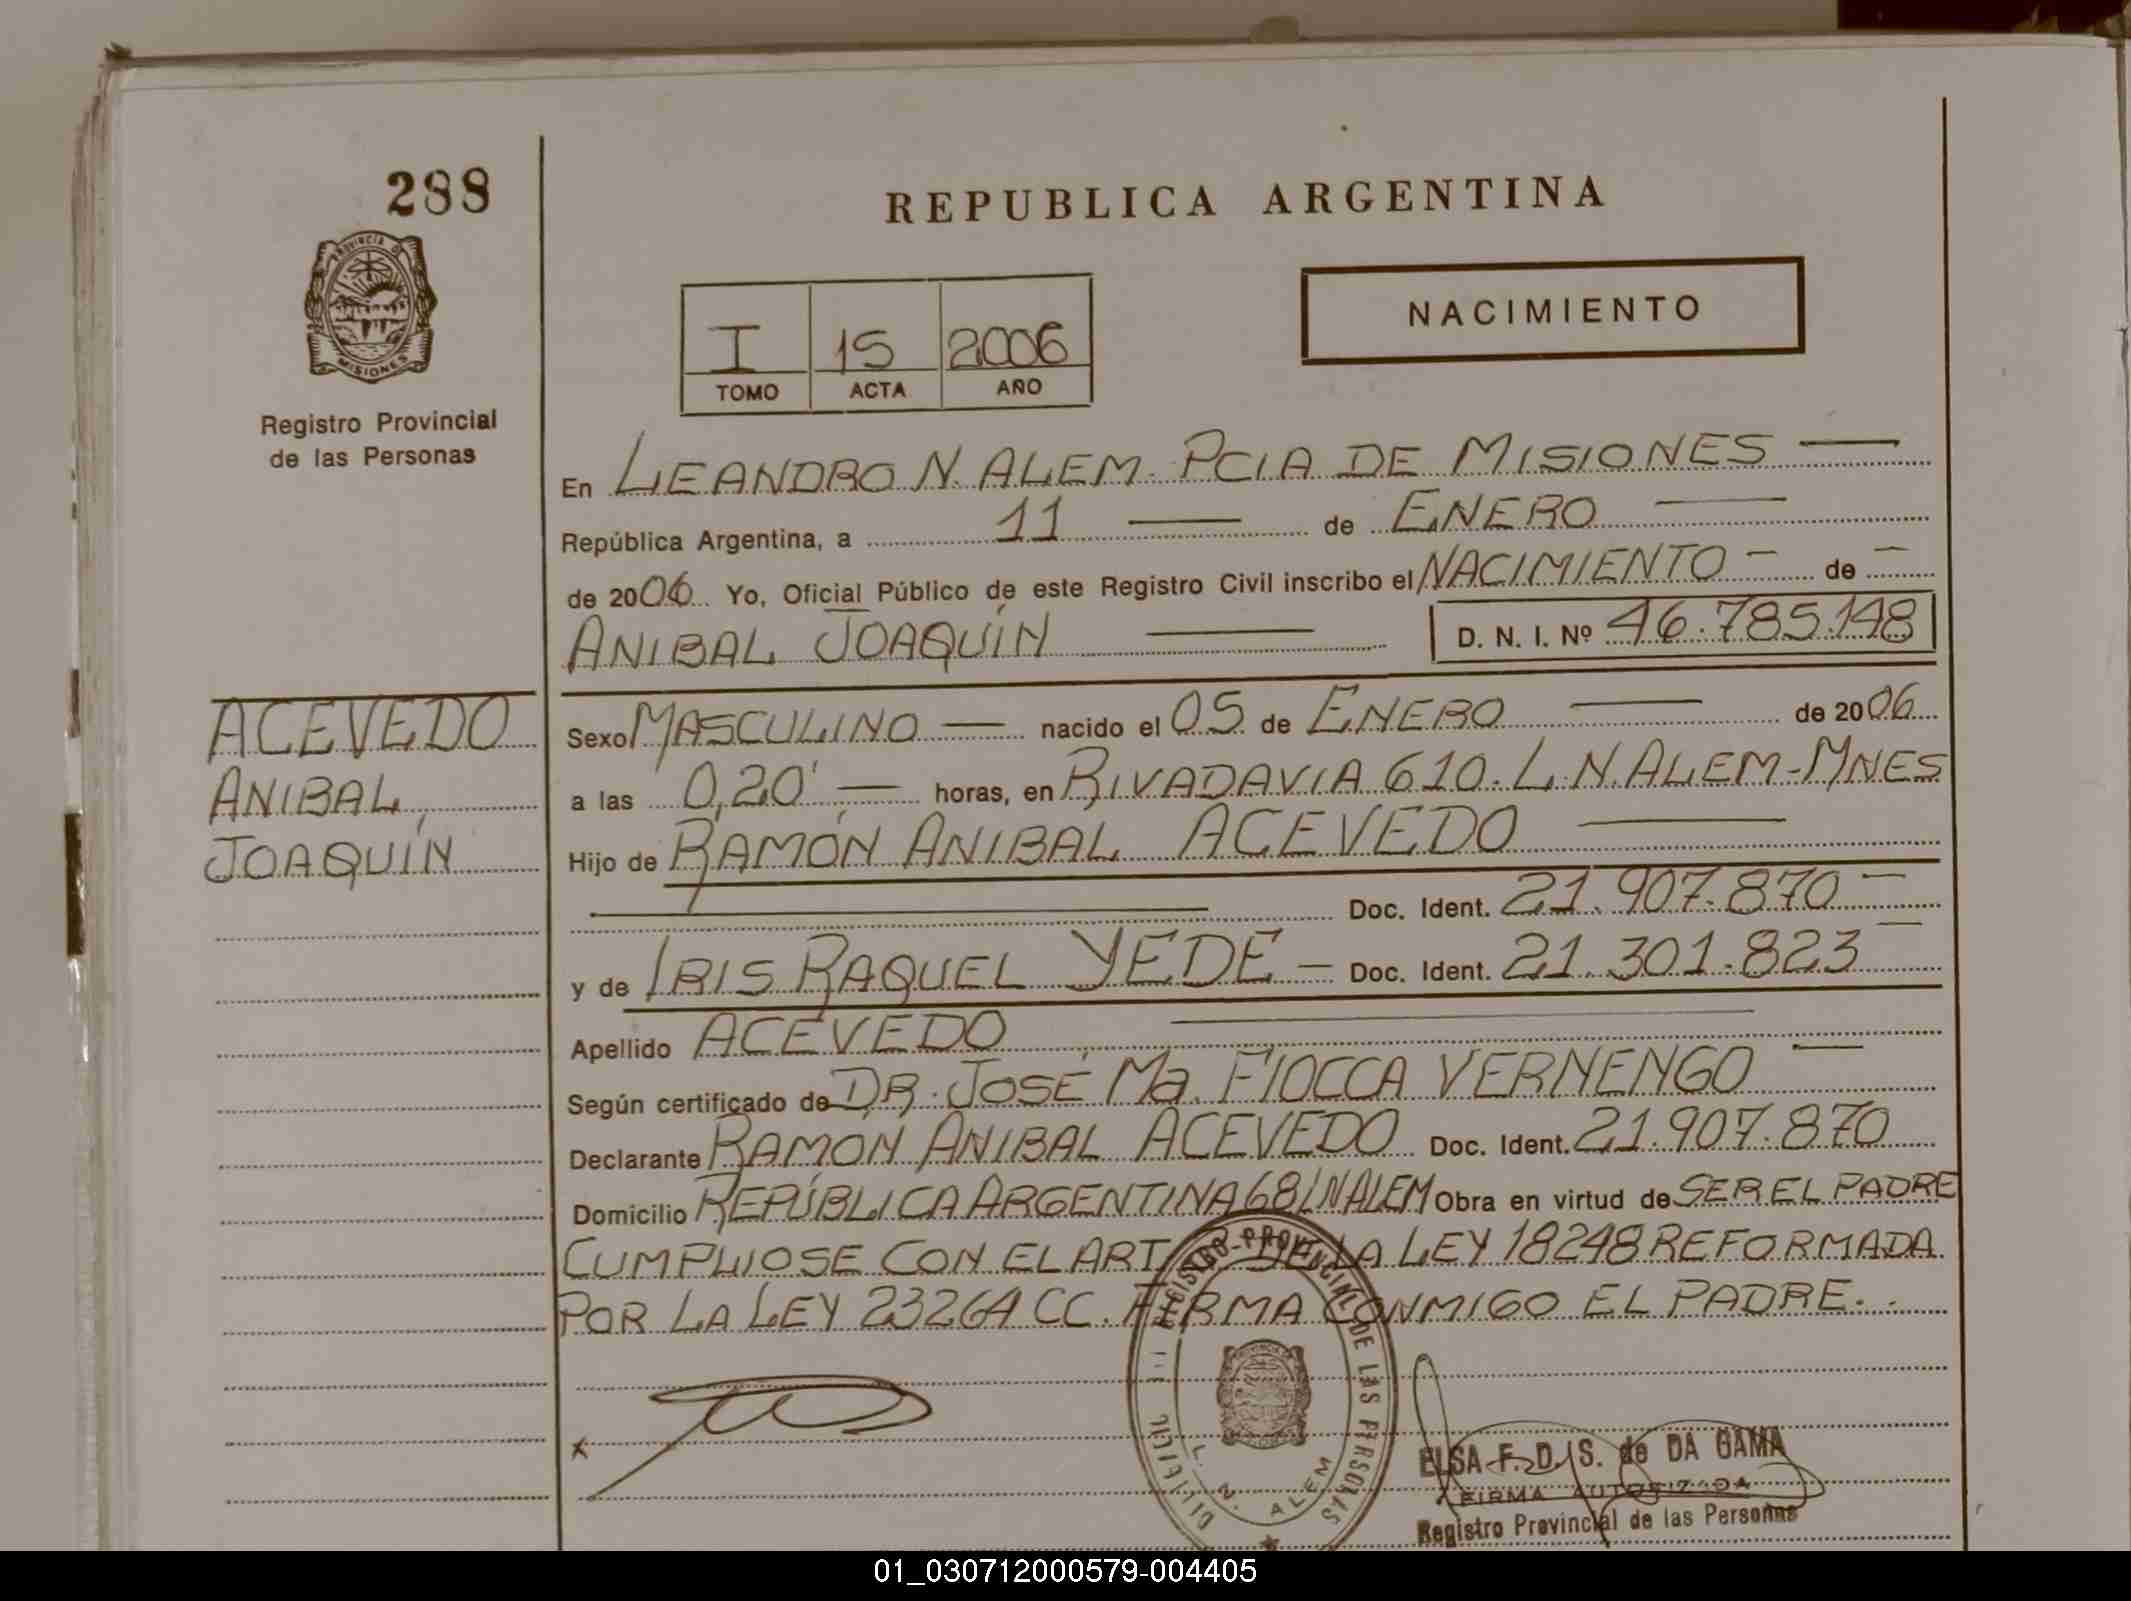 288
REPUBLICA ARGENTINA
PROVINCIA DE
MISIONES
NACIMIENTO
I 15 2006
TOMO ACTA AÑO
Registro Provincial
de las Personas
En LEANDRO N. ALEM. PCIA DE MISIONES
República Argentina, a 11 de ENERO
de 2006 Yo, Oficial Público de este Registro Civil inscribo el NACIMIENTO - de -
ANIBAL JOAQUÍN D. N. I. Nº 46.785.148
ACEVEDO
ANIBAL
JOAQUÍN
Sexo MASCULINO — nacido el 05 de ENERO de 2006
a las 0,20' — horas, en RIVADAVIA 610. L.N. ALEM-MNES
Hijo de RAMÓN ANIBAL ACEVEDO
Doc. Ident. 21.907.870 -
y de IRIS RAQUEL YEDE - Doc. Ident. 21.301.823 -
Apellido ACEVEDO
Según certificado de DR. JOSÉ Ma. FIOCCA VERNENGO
Declarante RAMÓN ANIBAL ACEVEDO Doc. Ident. 21.907.870
Domicilio REPÚBLICA ARGENTINA 68 L N ALEM Obra en virtud de SER EL PADRE
CUMPLIOSE CON EL ART DE LA LEY 18248 REFORMADA
POR LA LEY 23264 CC. FIRMA CONMIGO EL PADRE.
REGISTRO PROVINCIAL DE LAS PERSONAS
L. N. ALEM
ELSA F. D. S. de DA GAMA
FIRMA AUTORIZADA
Registro Provincial de las Personas
01_030712000579-004405